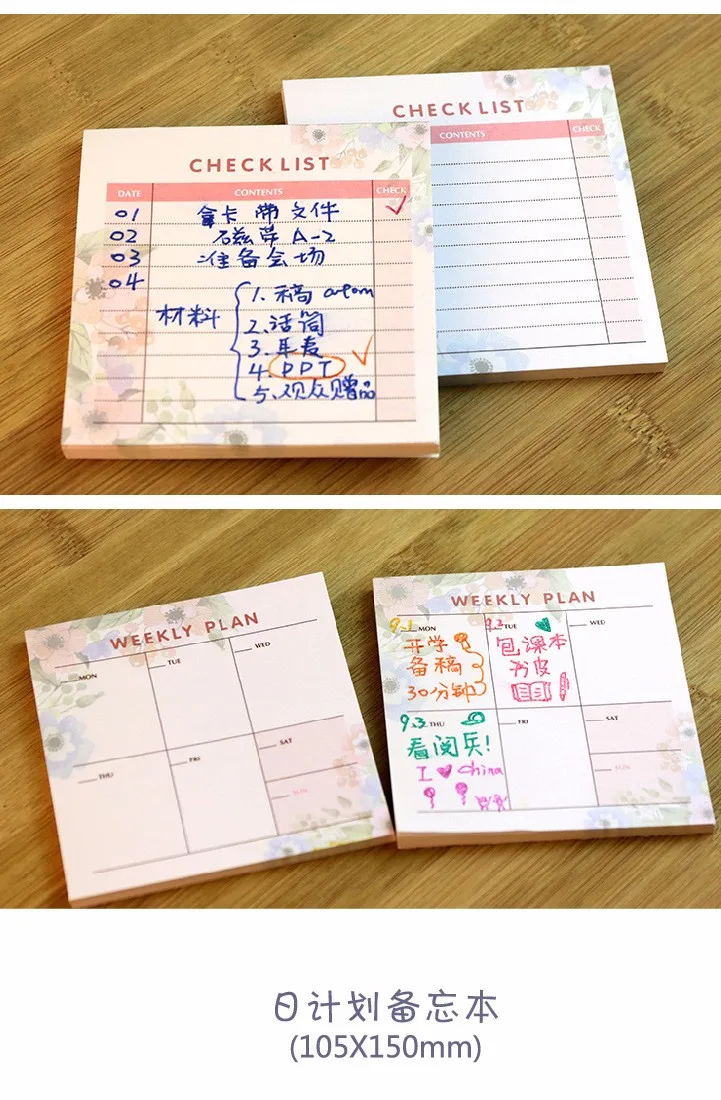 CHECK LIST
CONTENTS CHECK
CHECK LIST
DATE CONTENTS CHECK
01 拿卡 带 文件
02 磁带 A-2
03 准备会场
04
材料
1. 稿
2. 话筒
3. 耳麦
4. PPT
5. 观众赠品
WEEKLY PLAN
MON TUE WED
THU FRI SAT
SUN
WEEKLY PLAN
9.1 MON 9.2 TUE WED
开学
备稿
30分钟
包课本
书皮
9.3 THU FRI SAT
SUN
看阅兵!
I ♥ China
日计划备忘本
(105X150mm)